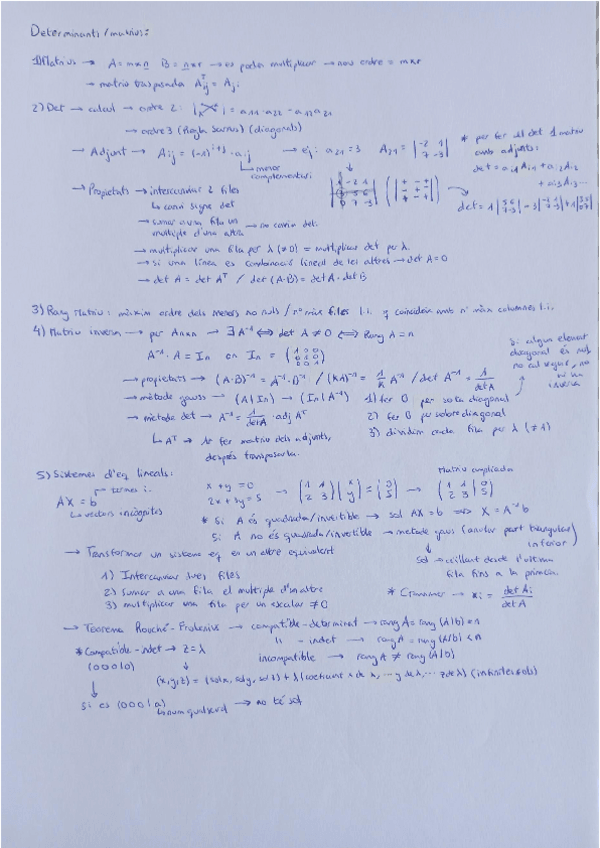 Determinants/matrius:
1) Matrius → A = m×n B = n×r → es poden multiplicar → nou ordre = m×r
→ matriu trasposada Aᵀij = Aji
2) Det → calcul → ordre 2: = a11·a22 - a12a21
→ ordre 3 (Regla Sarrus) (diagonals)
→ Adjunt → Aij = (-1)^(i+j) · aij → ej: a21 = 3 A21 = |-2 1; 7 -3|
menor complementari
* per fer el det d matriu
amb adjunts:
det = a11A11 + a12A12
+ a13A13...
→ Propietats → intercanviar 2 files
↳ canvi signe det
→ sumar a una fila un
multiple d'una altra → no canvia det.
→ multiplicar una fila per λ (≠0) = multiplicar det per λ.
→ si una línea es combinació lineal de les altres → det A = 0
→ det A = det Aᵀ / det (A·B) = det A · det B
3) Rang Matriu: màxim ordre dels menors no nuls / nº màx files l.i. y coincideix amb nº màx columnes l.i.
4) Matriu inversa → per Anxn → ∃ A⁻¹ ⟺ det A ≠ 0 ⟺ Rang A = n
A⁻¹ · A = In on In = (1 0 0; 0 1 0; 0 0 1)
→ propietats → (A·B)⁻¹ = A⁻¹·B⁻¹ / (KA)⁻¹ = 1/K A⁻¹ / det A⁻¹ = 1/det A
Si algun element
diagonal és nul
no cal seguir, no
hi ha
inversa
→ mètode gauss → (A|In) → (In|A⁻¹) 1) fer 0 per sota diagonal
→ mètode det → A⁻¹ = 1/det A · adj Aᵀ 2) fer 0 per sobre diagonal
3) dividim cada fila per λ (≠1)
↳ Aᵀ → fer matriu dels adjunts,
després transposarla.
5) Sistemes d'eq lineals:
AX = b
termes i.
↳ vectors incògnites
x + y = 0
2x + 3y = 5 → (1 1; 2 3) (x; y) = (0; 5) → (1 1 | 0; 2 3 | 5)
Matriu ampliada
* Si A és quadrada/invertible → sol AX = b ⟹ X = A⁻¹b
Si A no és quadrada/invertible → metode gaus (anular part triangular
inferior)
Sol → aillant desde l'última
fila fins a la primera
→ Transformar un sistema eq en un altre equivalent
1) Intercanviar dues files
2) Sumar a una fila el multiple d'un altre
3) multiplicar una fila per un escalar ≠ 0
* Crammer → xi = det Ai / det A
→ Teorema Rouché-Frobenius → compatible-determinat → rang A = rang (A|b) = n
" -indet → rang A = rang (A|b) < n
incompatible → rang A ≠ rang (A|b)
* Compatible-indet → z = λ
(0 0 0 | 0)
(x,y,z) = (sol x, sol y, sol z) + λ (coeficient x de λ, ... y de λ, ... z de λ) (infinites sols)
Si es (0 0 0 | a) → no té sol
↳ num qualsevol